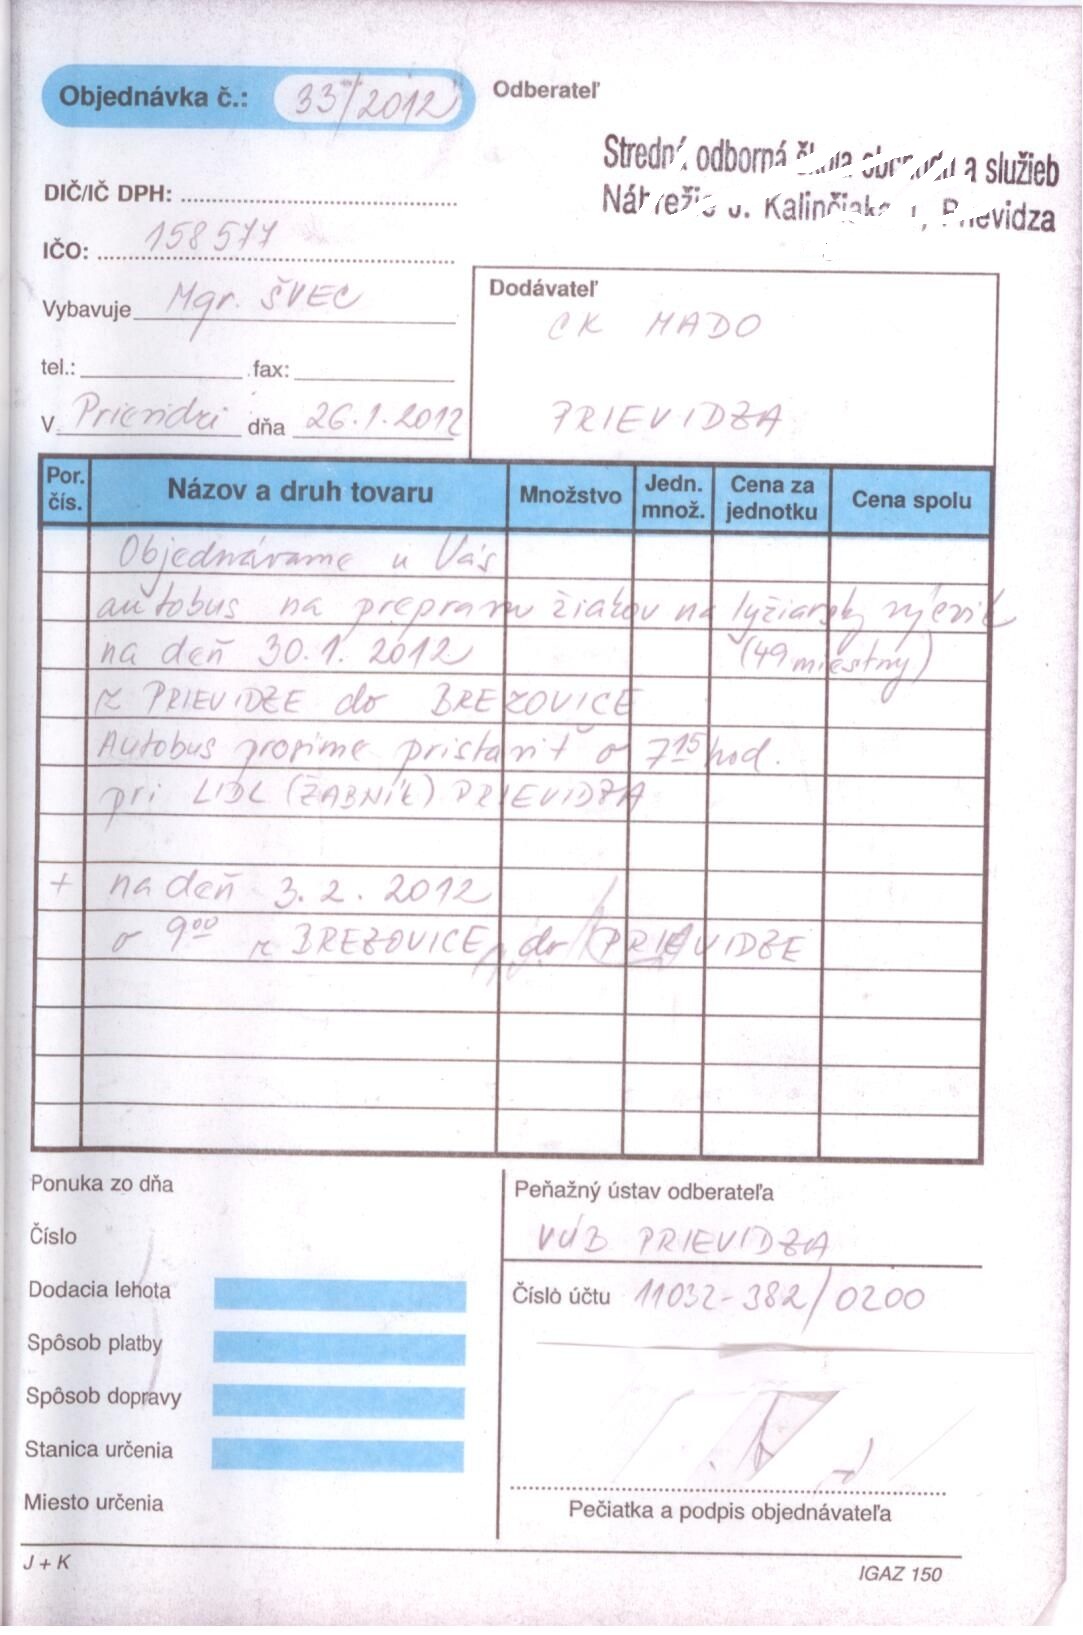 Objednávka č.: 33/2012
Odberateľ
Stredná odborná škola obchodu a služieb
Nábrežie J. Kalinčiaka 1, Prievidza
DIČ/IČ DPH:
IČO: 158577
Vybavuje Mgr. ŠVEC
tel.: fax:
V Prievidzi dňa 26.1.2012
Dodávateľ
CK MADO
PRIEVIDZA
Por. čís. Názov a druh tovaru Množstvo Jedn. množ. Cena za jednotku Cena spolu
Objednávame u Vás
autobus na prepravu žiakov na lyžiarsky výcvik
na deň 30.1. 2012 (49 miestny)
z PRIEVIDZE do BREZOVICE
Autobus prosíme pristaviť o 7 15 hod.
pri LIDL (ŽABNÍK) PRIEVIDZA
+ na deň 3.2.2012
o 9 00 z BREZOVICE do PRIEVIDZE
Ponuka zo dňa
Číslo
Dodacia lehota
Spôsob platby
Spôsob dopravy
Stanica určenia
Miesto určenia
Peňažný ústav odberateľa
VÚB PRIEVIDZA
Číslo účtu 11032-382/0200
Pečiatka a podpis objednávateľa
J + K
IGAZ 150